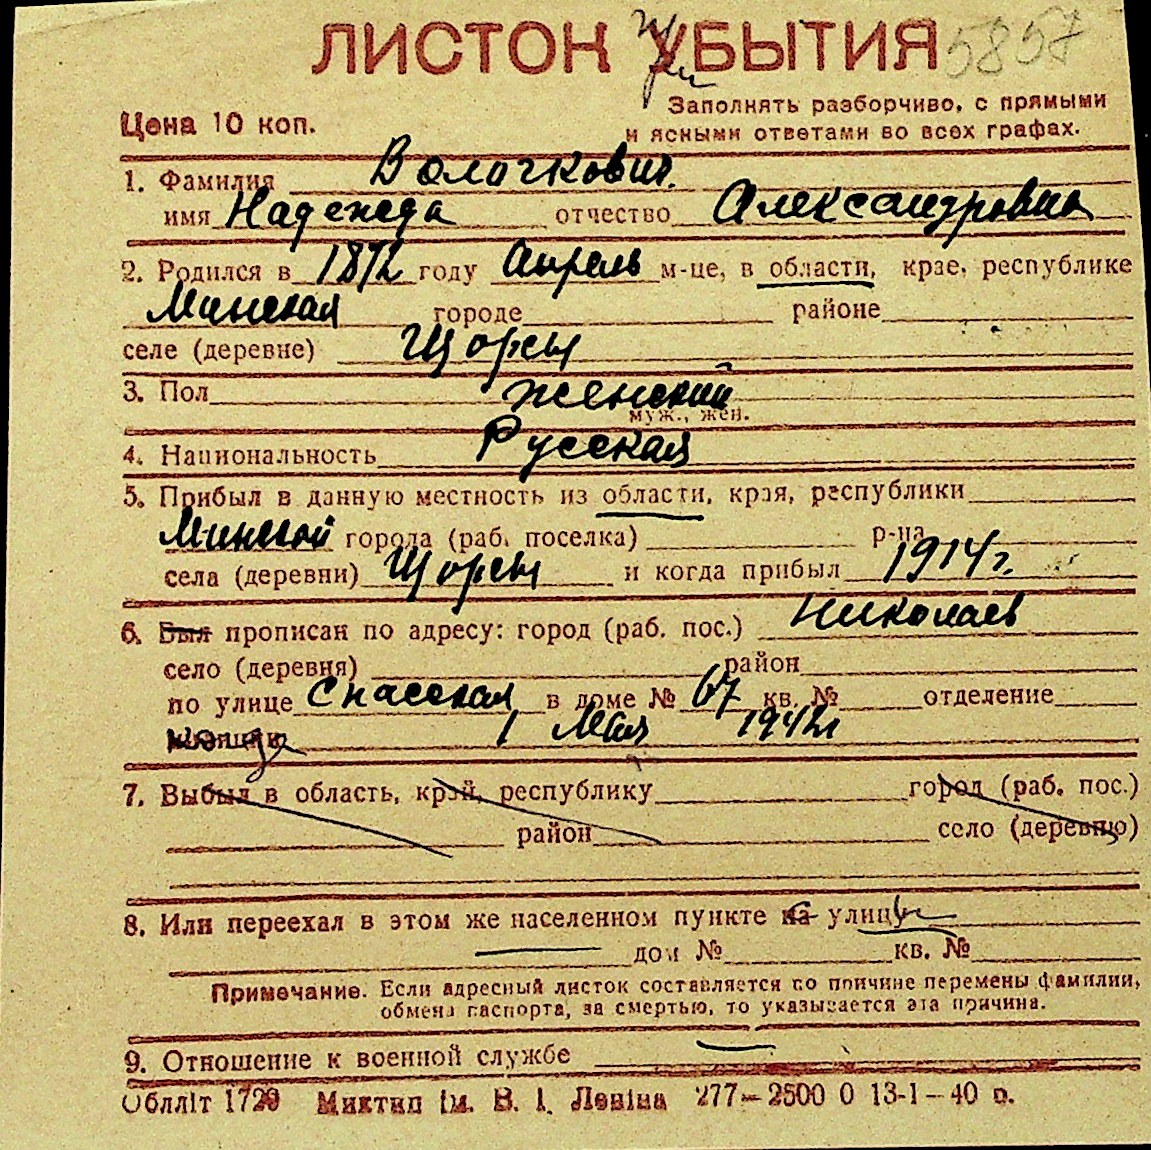 ЛИСТОК УБЫТИЯ 5857
при
Заполнять разборчиво, с прямыми
Цена 10 коп. и ясными ответами во всех графах.
1. Фамилия Волочкович.
имя Надежда отчество Александровна
2. Родился в 1872 году Апрель м-це, в области, крае, республике
Минская городе районе
селе (деревне) Щорсы
3. Пол женский
муж., жен.
4. Национальность Русская
5. Прибыл в данную местность из области, края, республики
Минской города (раб. поселка) р-на
села (деревни) Щорсы и когда прибыл 1914 г.
6. Был прописан по адресу: город (раб. пос.) Николаев
село (деревня) район
по улице Спасская в доме № 67 кв. № отделение
милиции 1 Мая 1942 г
7. Выбыл в область, край, республику город (раб. пос.)
район село (деревню)
8. Или переехал в этом же населенном пункте на улицу
дом № кв. №
Примечание. Если адресный листок составляется по причине перемены фамилии,
обмена паспорта, за смертью, то указывается эта причина.
9. Отношение к военной службе
Облліт 1729 Миктип ім. В. І. Леніна 277—2500 0 13-1—40 р.